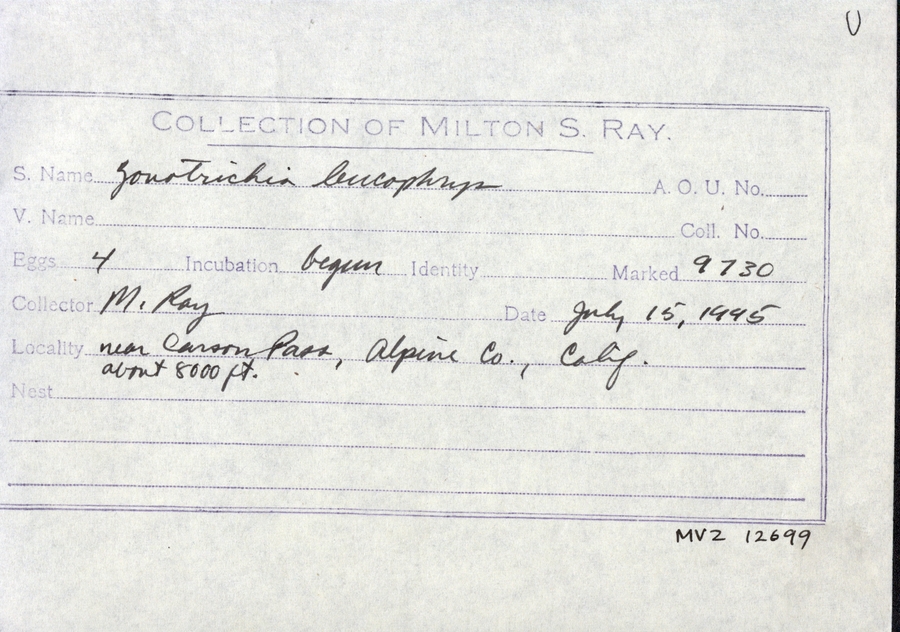 U
COLLECTION OF MILTON S. RAY.
S. Name Zonotrichia leucophrys A. O. U. No.
V. Name Coll. No.
Eggs 4 Incubation begun Identity Marked 9730
Collector M. Ray Date July 15, 1945
Locality near Carson Pass, Alpine Co., Calif.
about 8000 ft.
Nest
MVZ 12699